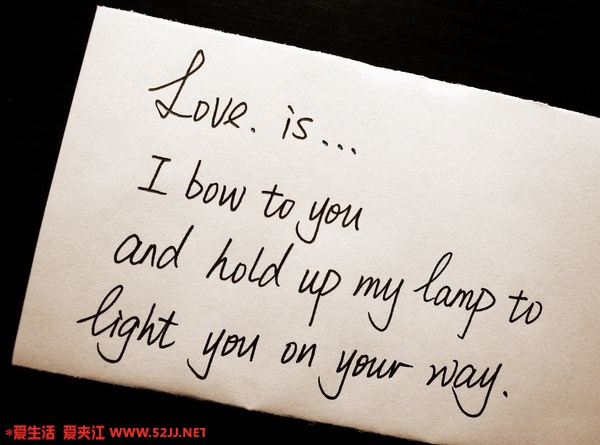 Love. is...
I bow to you
and hold up my lamp to
light you on your way.
*爱生活 爱夹江 WWW.52JJ.NET